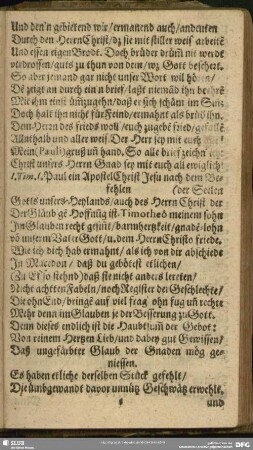 Und den'n gebietend wir/ ermanend auch/ andeuten
Durch den HerrnChrist/ dz sie mit stiller weis' arbeitē
Und essen eigen Brodt. Doch brüder drüm̄ nit werdt
verdrossen/ guts zu thun von dem/ wz Gott beschert.
So aber jemand gar nicht unser Wort wil hören/
De' zeigt an durch ein'n brief/ laßt niemād ihn bethörē
Mit ihm einst üm̄zugehn/ daß er sich schäm im Sinn
Doch halt ihn nicht für Feind/ ermahnt als brüd'ihn.
Vom Herrn des frieds woll/ euch zugebē fried/
Allenthalb und aller weis'. Der Herr sey mit euch alle
Mein/ Pauli/ gruß uñ hand. So alle brief zeichn' ich:
Christi unsers Herrn Gnad sey mit euch all ewiglich!
1.Tim.1. Paul ein Apostel Christ Jesu nach dem Be-
fehlen (der Seelen
Gotts unsers Heylands/ auch des Herrn Christ der
Der Gläub'gē Hoffnūg ist. Timotheō meinem sohn
Im Glauben recht gesiñt/ barmherzkeit/ gnad e lohn
vō unserm Vater Gott/ u. dem Herrn Christo friede.
Wie ich dich hab ermahnt/ als ich von dir abschiede
In Macedon/ daß du gebötest etlichen/
(Zu Efso stehnd) daß sie nicht anders lereten/
Nicht achtten Fabeln/ noch Register der Geschlechte/
Die ohn End/ bringē auf viel frag' ohn fug uñ rechte
Mehr denn im Glauben je der Besserung zu Gott.
Denn dieses endlich ist die Haubtsum̄ der Gebot:
Von reinem Hertzen Lieb/ und dabey gut Gewissen/
Daß ungefärbter Glaub der Gnaden mög ge-
niessen.
Es haben etliche derselben Stück gefehlt/
Die ümbgewandt davor unnütz Geschwätz erwehlt.
und
SLUB
DFG